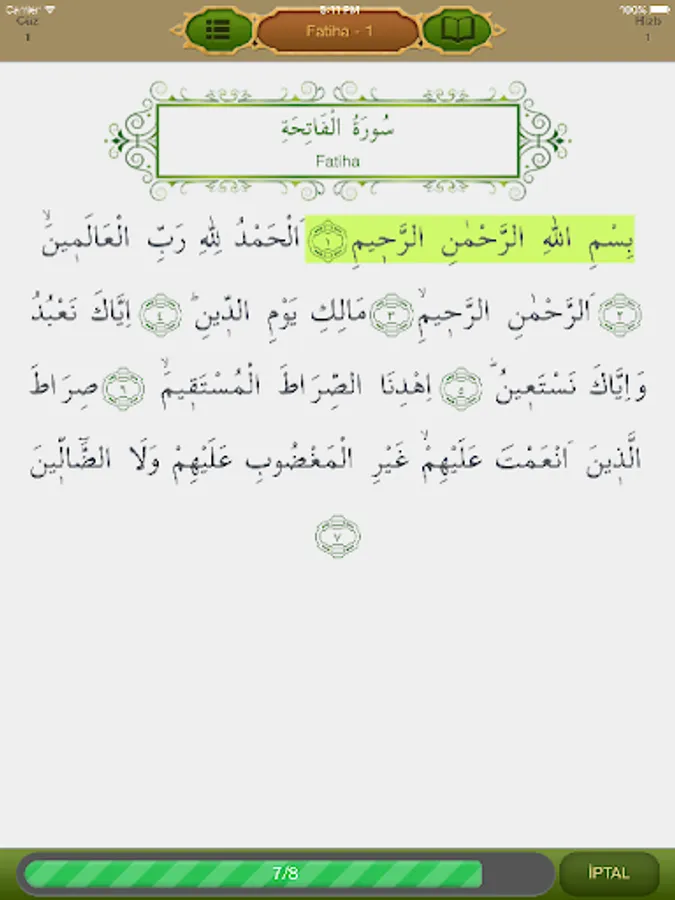 Carrier 5:11 PM 100%
Cüz Fatiha - 1 Hizb
1 1
سُورَةُ الْفَاتِحَةِ
Fatiha
بِسْمِ اللهِ الرَّحْمٰنِ الرَّح۪يمِ ﴿١﴾ اَلْحَمْدُ لِلّٰهِ رَبِّ الْعَالَم۪ينَۙ
﴿٢﴾ اَلرَّحْمٰنِ الرَّح۪يمِۙ ﴿٣﴾ مَالِكِ يَوْمِ الدّ۪ينِۜ ﴿٤﴾ اِيَّاكَ نَعْبُدُ
وَاِيَّاكَ نَسْتَع۪ينُۜ ﴿٥﴾ اِهْدِنَا الصِّرَاطَ الْمُسْتَق۪يمَۙ ﴿٦﴾ صِرَاطَ
الَّذ۪ينَ اَنْعَمْتَ عَلَيْهِمْۙ غَيْرِ الْمَغْضُوبِ عَلَيْهِمْ وَلَا الضَّٓالّ۪ينَ
﴿٧﴾
7/8 İPTAL